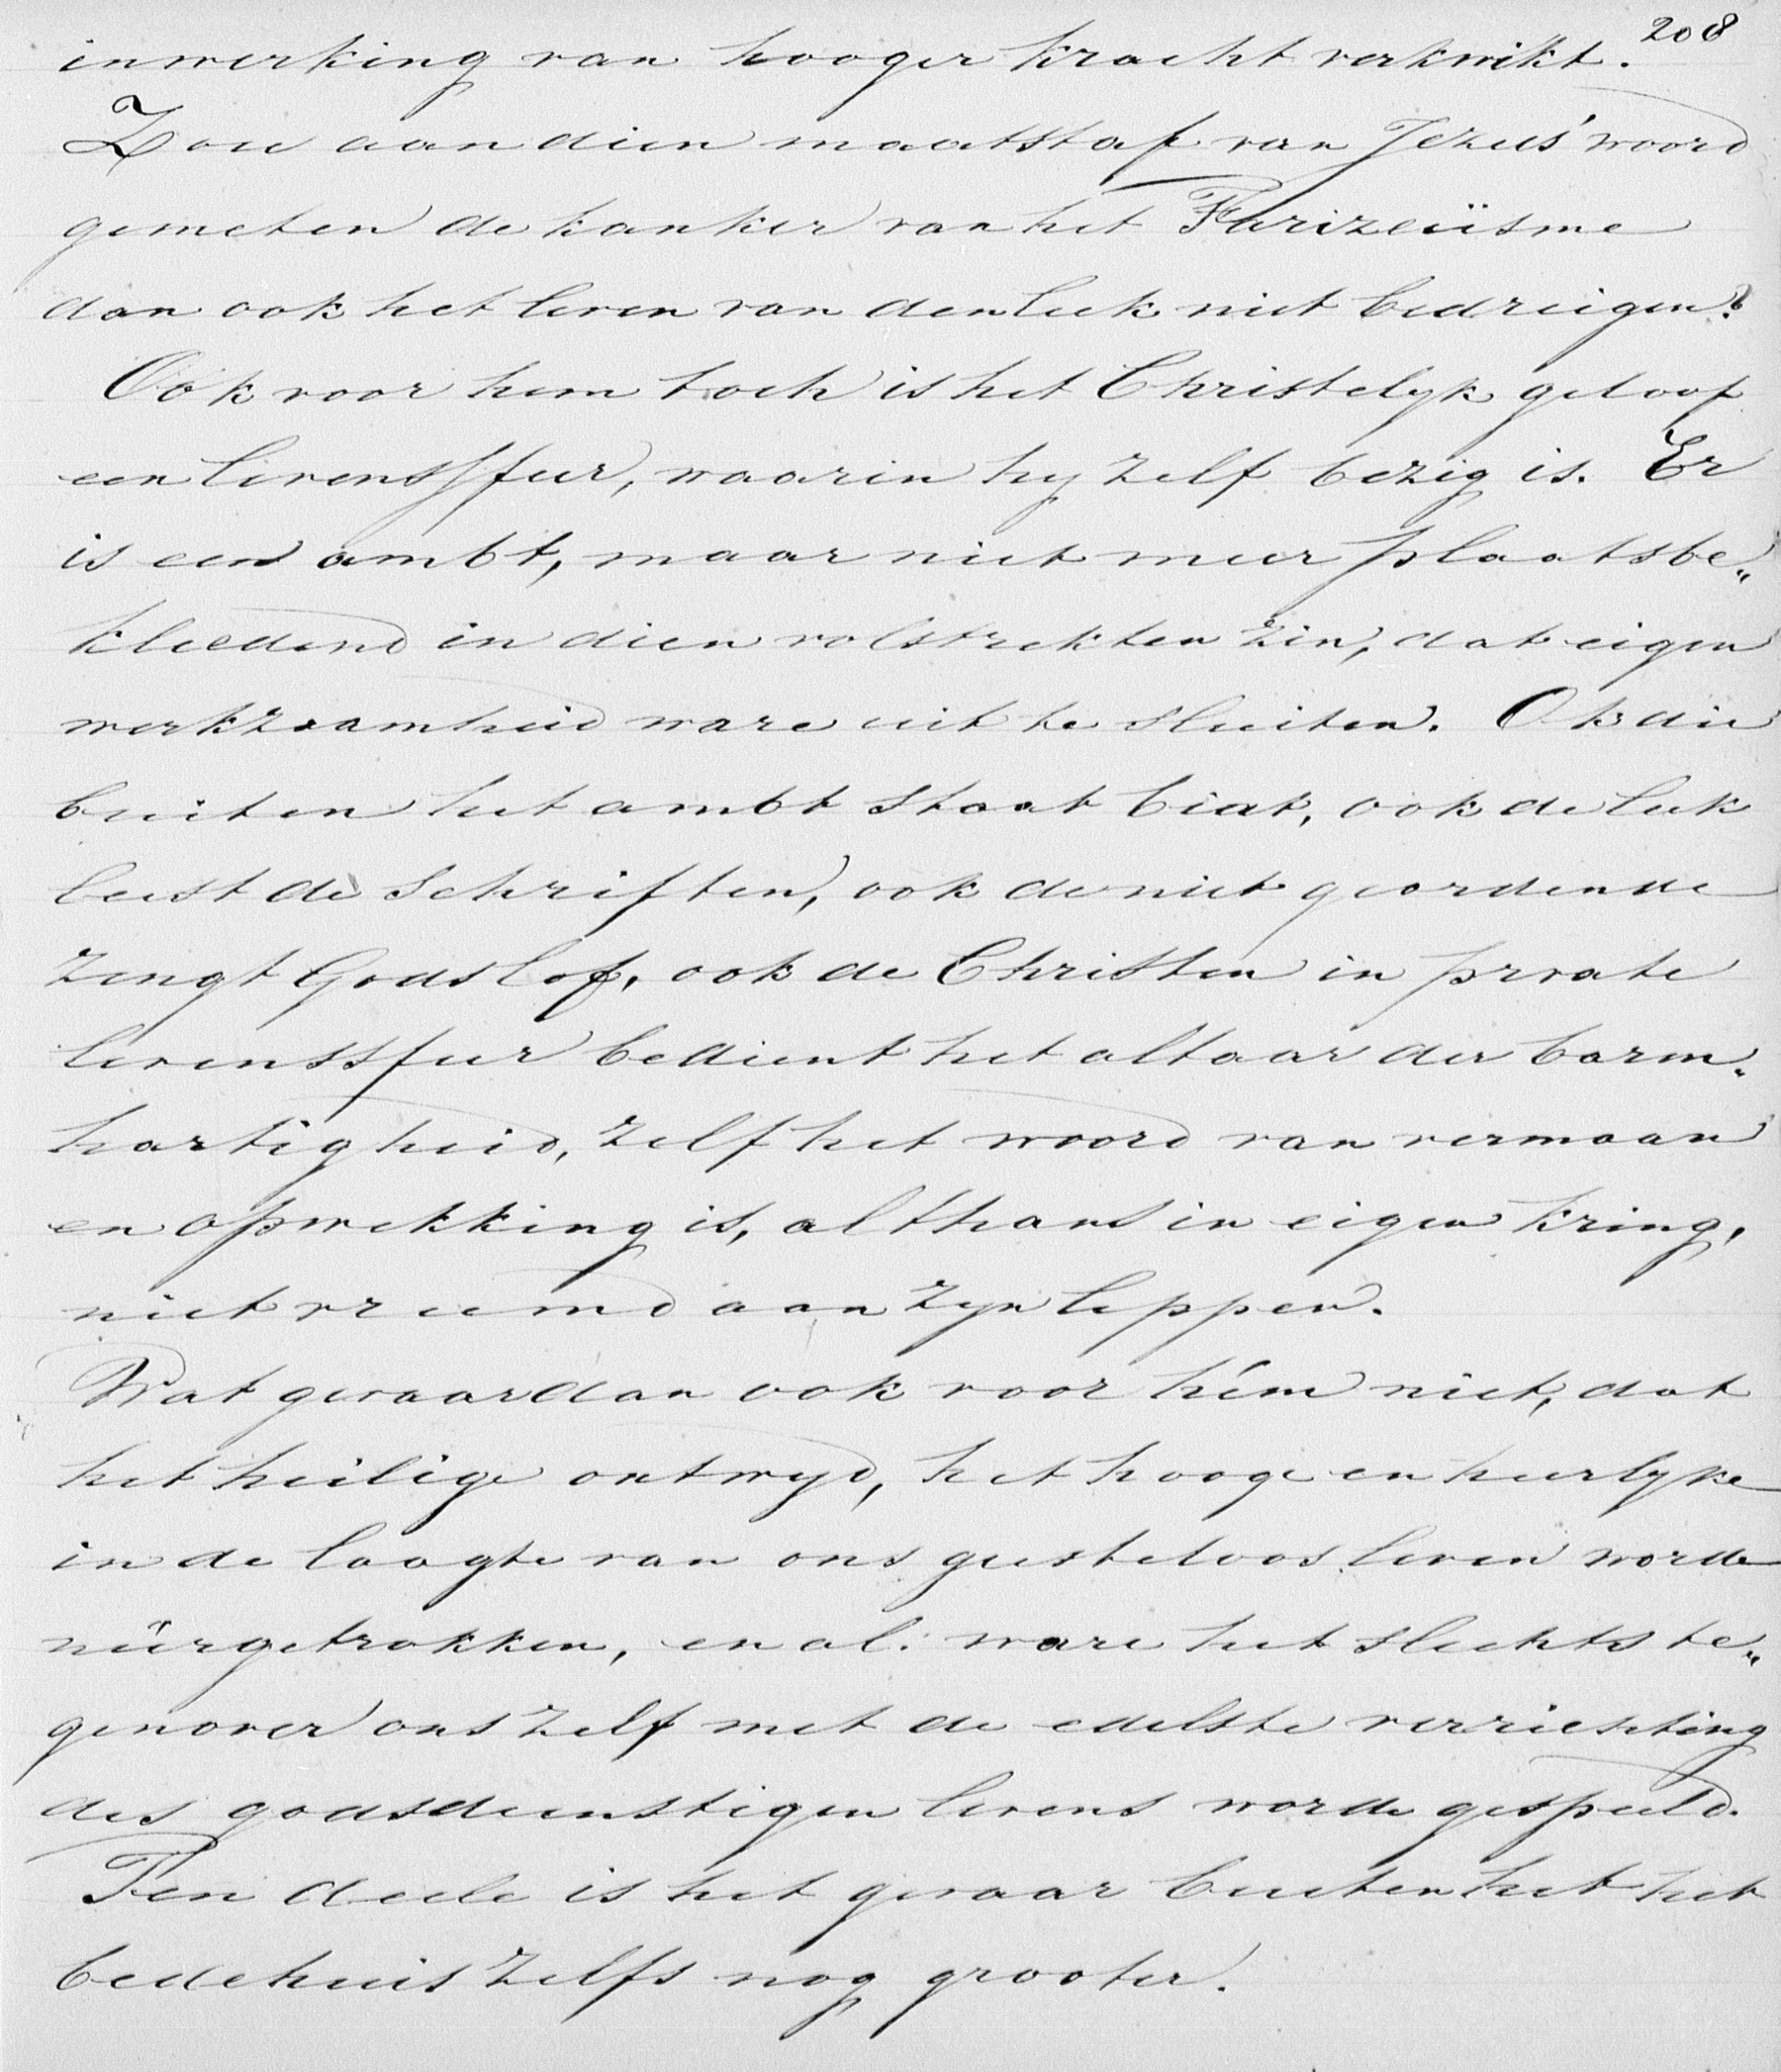 208
inwerking van hooger kracht verkwikt.
Zou aan dien maatstaf van Jezus' woord
gemeten de kanker van het Farizeïsme
dan ook het leven van den leek niet bedreigen?
Ook voor hem toch is het Christelyk geloof
een levenssfeer, waarin hy zelf bezig is. Er
is een ambt, maar niet meer plaatsbe„
kleedend in dien volstrekten zin, dat eigen
werkzaamheid ware uit te sluiten. Ok die
buiten het ambt staat bidt, ook de leek
leest de Schriften, ook de niet geordende
zingt Gods lof, ook de Christen in private
levenssfeer bedient het altaar der barm„
hartigheid, zelf het woord van vermaan
en opwekking is, althans in eigen kring,
niet vreemd aan zyn lippen.
Wat gevaar dan ook voor hém niet, dat
het heilige ontwyd, het hooge en heerlyke
in de laagte van ons geesteloos leven worde
neêrgetrokken, en al ware het slechts te„
genover ons zelf met de edelste verrichting
des godsdienstigen levens worde gespeeld.
Ten deele is het gevaar buiten het het
bedehuis zelfs nog grooter.